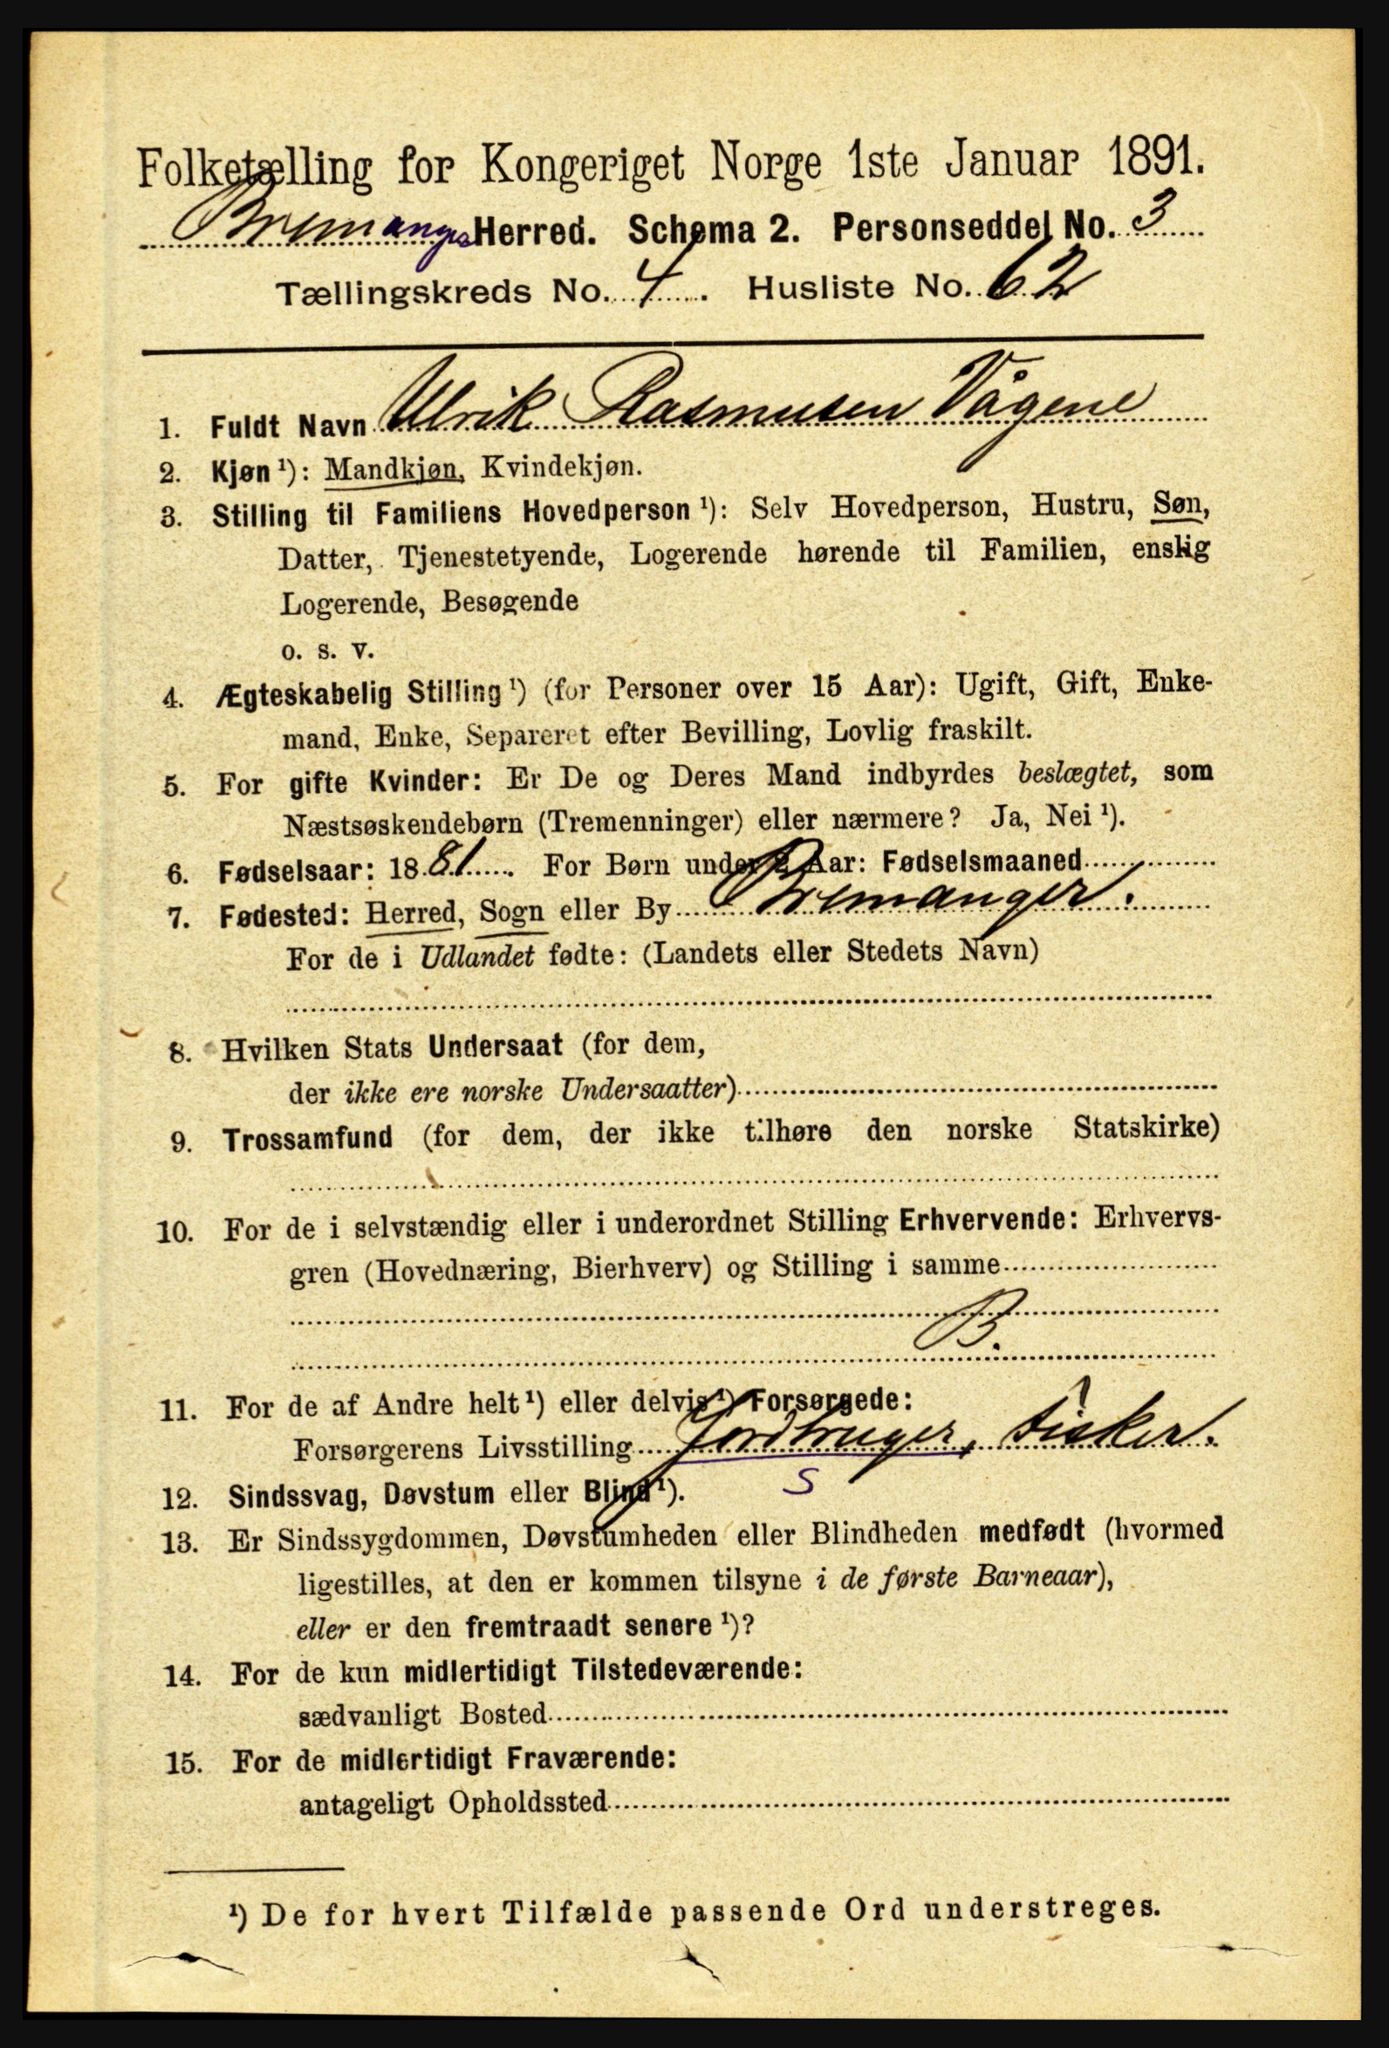 Folketælling for Kongeriget Norge 1ste Januar 1891.
Bremanger Herred. Schema 2. Personseddel No. 3
Tællingskreds No. 4. Husliste No. 62
1. Fuldt Navn Ulrik Rasmusen Vågene
2. Kjøn ¹): Mandkjøn, Kvindekjøn.
3. Stilling til Familiens Hovedperson ¹): Selv Hovedperson, Hustru, Søn,
Datter, Tjenestetyende, Logerende hørende til Familien, enslig
Logerende, Besøgende
o. s. v.
4. Ægteskabelig Stilling ¹) (for Personer over 15 Aar): Ugift, Gift, Enke-
mand, Enke, Separeret efter Bevilling, Lovlig fraskilt.
5. For gifte Kvinder: Er De og Deres Mand indbyrdes beslægtet, som
Næstsøskendebørn (Tremenninger) eller nærmere? Ja, Nei ¹).
6. Fødselsaar: 1881. For Børn under 2 Aar: Fødselsmaaned
7. Fødested: Herred, Sogn eller By Bremanger.
For de i Udlandet fødte: (Landets eller Stedets Navn)
8. Hvilken Stats Undersaat (for dem,
der ikke ere norske Undersaatter)
9. Trossamfund (for dem, der ikke tilhøre den norske Statskirke)
10. For de i selvstændig eller i underordnet Stilling Erhvervende: Erhvervs-
gren (Hovednæring, Bierhverv) og Stilling i samme
B.
11. For de af Andre helt ¹) eller delvis ¹) Forsørgede:
Forsørgerens Livsstilling Jordbruger, fisker.
S
12. Sindssvag, Døvstum eller Blind ¹).
13. Er Sindssygdommen, Døvstumheden eller Blindheden medfødt (hvormed
ligestilles, at den er kommen tilsyne i de første Barneaar),
eller er den fremtraadt senere ¹)?
14. For de kun midlertidigt Tilstedeværende:
sædvanligt Bosted
15. For de midlertidigt Fraværende:
antageligt Opholdssted
¹) De for hvert Tilfælde passende Ord understreges.